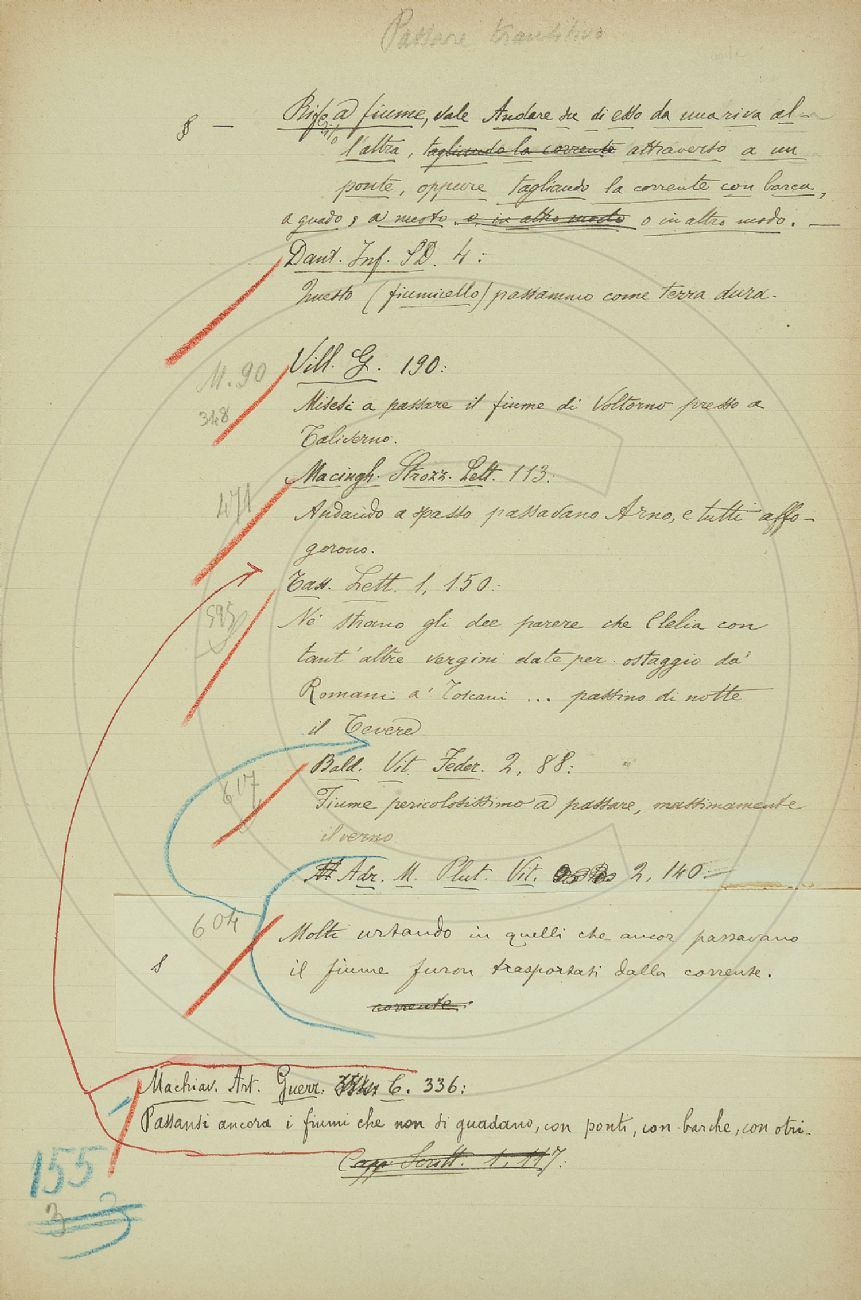 Passare transitivo
§ — Rifto a fiume, vale Andare su di esso da una riva al-
l'altra, tagliando la corrente attraverso a un
ponte, oppure tagliando la corrente con barca,
a guado, a nuoto o in altro modo o in altro modo. —
Dant. Inf. SD. 4:
Questo (fiumicello) passammo come terra dura.
M. 90
Vill. G. 190:
348
Misesi a passare il fiume di Voltorno presso a
Taliverno.
Macingh. Strozz. Lett. 113:
471
Andando a spasso passavano Arno, e tutti affo-
gorono.
Tass. Lett. 1, 150:
595
Nè strano gli dee parere che Clelia con
tant'altre vergini date per ostaggio da'
Romani a' Toscani ... passino di notte
il Tevere
Bald. Vit. Feder. 2, 88:
617
Fiume pericolosissimo a passare, massimamente
il verno
Adr. M. Plut. Vit. 2, 140 —
604
Molti urtando in quelli che ancor passavano
§ il fiume furon trasportati dalla corrente.
corrente.
Machiav. Art. Guerr. 6. 336:
Passansi ancora i fiumi che non si guadano, con ponti, con barche, con otri.
Capp. Scritt. 1, 117:
155
3